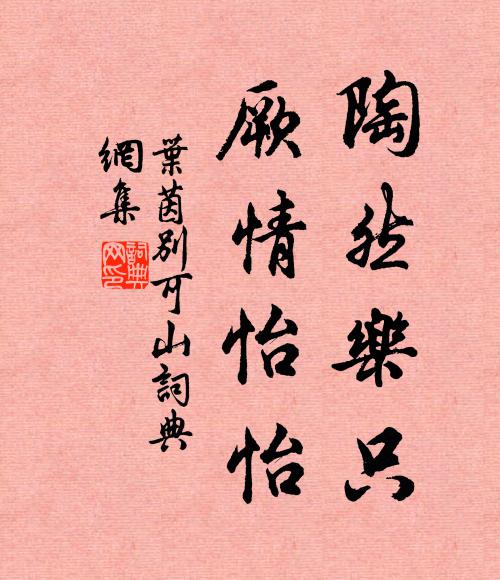 陶然樂只
厥情怡怡
葉茵別可山詞典
網集
詞典網印